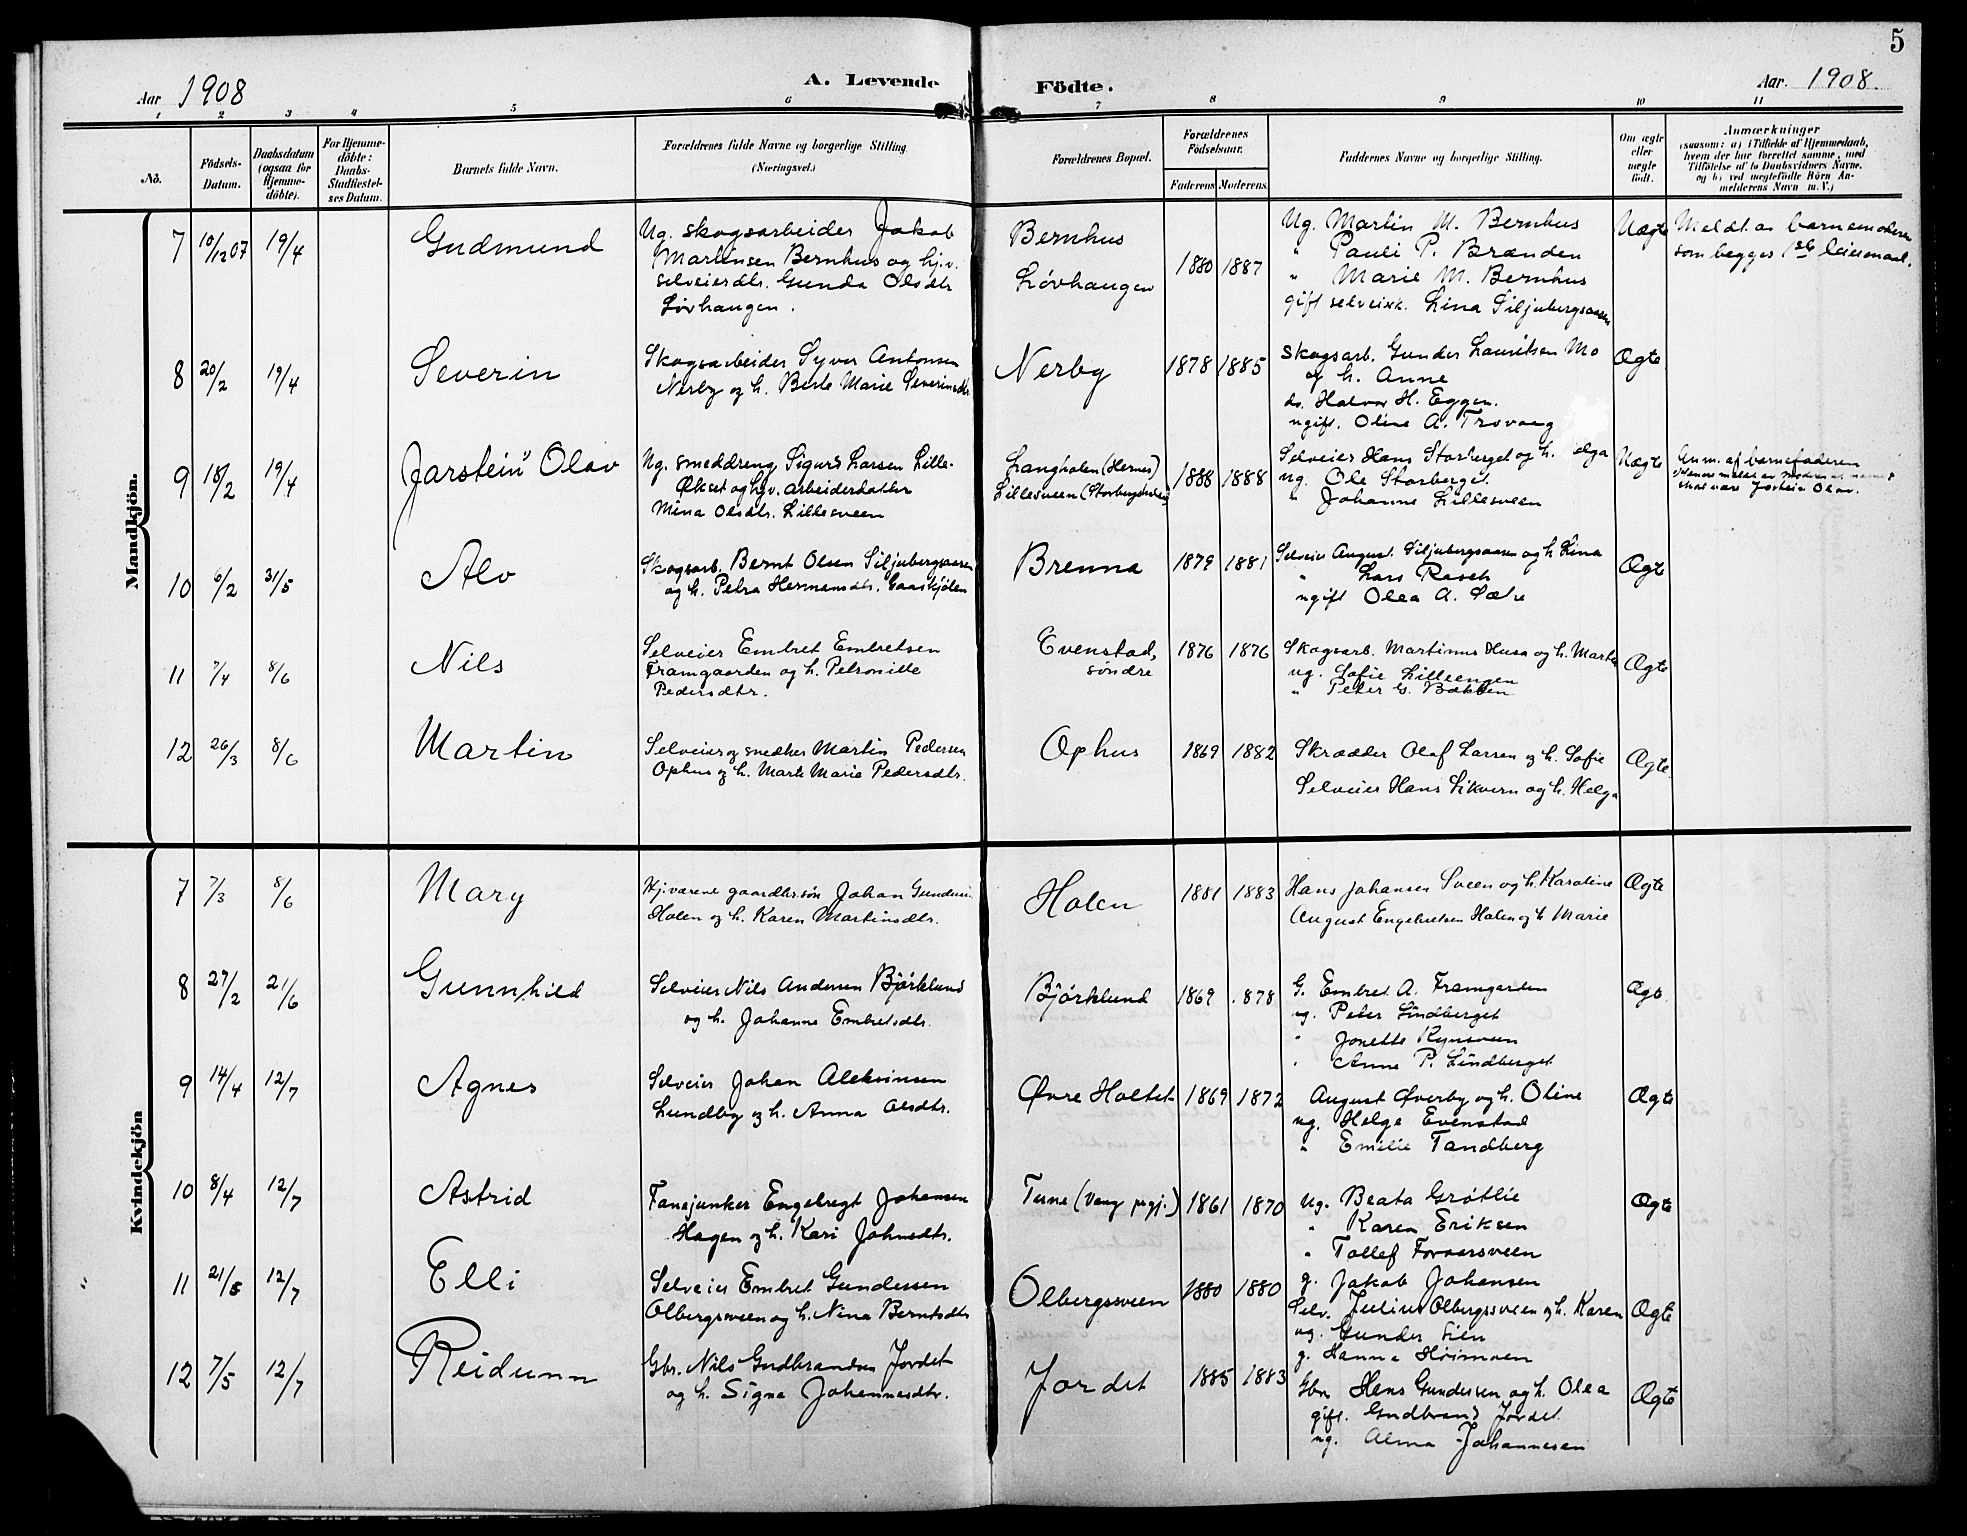 5
Aar 1908
A. Levende
Födte.
Aar. 1908.
1 2 3 4 5 6 7 8 9 10 11
No.
Födsels-
Datum.
Daabsdatum
(ogsaa for
Hjemme-
döbte).
For Hjemme-
döbte:
Daabs-
Stadfæstel-
ses Datum.
Barnets fulde Navn.
Forældrenes fulde Navne og borgerlige Stilling
(Næringsvei.)
Forældrenes Bopæl.
Forældrenes
Födselsaar.
Faderens. Moderens.
Faddernes Navne og borgerlige Stilling.
Om ægte
eller
uægte
födt.
Anmærkninger
(saasom: a) i Tilfælde af Hjemmedaab,
hvem der har forrettet samme, med
Tilföielse af to Daabsvidners Navne.
og b) ved uægtefödte Börn An-
melderens Navn m. V.)
Mandkjön.
7 10/12 07 19/4 Gudmund
Ug. skogsarbeider Jakob
Martinsen Bernhus og hj.v.
selveierdtr. Gunda Olsdtr
Lövhaugen.
Bernhus
Løvhaugen
1880 1887
Ug. Martin M. Bernhus
" Pauli P. Brænden
" Marie M. Bernhus
gift selveiek. Lina Siljubergsaasen
Uægte
Meldt av barnemoderen
som begges 1ste leiermaal.
8 20/2 19/4 Severin
Skogsarbeider Syver Antonsen
Nerby og h. Berte Marie Severinsdtr
Nerby
1878 1885
Skogsarb. Gunder Lauritsen Mo
og h. Anne
do. Halvor H. Eggen.
ugift. Oline A. Trovaag
Ægte
9 18/2 19/4 Jarstein Olav
Ug. smeddreng Sigurd Larsen Lille-
Økset og hjv. arbeiderdatter
Mina Olsdtr. Lillesveen
Langholen (Hernes)
Lillesveen (Storberget)
1888 1888
Selveier Hans Storberget og h. elga
ug. Ole Storberget
" Johanne Lillesveen
Uægte
Anm. af barnefaderen
skal være Jostein Olav.
10 6/2 31/5 Alv
Skogsarb. Bernt Olsen Siljubergsaasen
og h. Petra Hermansdtr. Gaaskjölen
Brenna
1879 1881
Selveier August Siljubergsaasen og h. Lina
" Lars Rasch
ugift Olea A. Sætre
Ægte
11 7/4 8/6 Nils
Selveier Embret Embretsen
Framgaarden og h. Petronille
Pedersdtr.
Evenstad,
søndre
1876 1876
Skogsarb. Martinus Husa og h. Marte
ug. Sofie Lilleengen
" Peter G. Bækken
Ægte
12 26/3 8/6 Martin
Selveier og snedker Martin Pedersen
Ophus og h. Marte Marie Pedersdtr.
Ophus
1869 1882
Skrædder Olaf Larsen og h. Sofie
Selveier Hans Likvern og h. Helga
Ægte.
Kvindekjön
7 7/3 8/6 Mary
Hj.værene gaardbr.søn Johan Gunders.
Holen og h. Karen Martinsdtr.
Holen
1881 1883
Hans Johansen Sveen og h. Karoline
August Engebretsen Holen og h Marie
Ægte
8 27/2 21/6 Gunnhild
Selveier Nils Andersen Björklund
og h. Johanne Embretsdtr.
Björklund
1869 1878
G. Embret A. Framgarden
ug. Peter Lindberget
" Jonette Rynsveen
" Anne P. Lindberget
Ægte.
9 14/4 12/7 Agnes
Selveier Johan Aleksinsen
Lundby og h. Anna Olsdtr.
Øvre Holtet
1869 1872
August Øverby og h. Oline
ug. Helge Evenstad
" Emilie Tandberg
Ægte
10 8/4 12/7 Astrid
Fanejunker Engebregt Johansen
Hagen og h. Kari Johnsdtr.
Terne (Vang prgj.)
1861 1870
ug. Beata Grøtlie
" Karen Eriksen
" Tollef Forvaarsveen
g. Jakob Johansen
Ægte
11 21/5 12/7 Elli
Selveier Embret Gundersen
Olbergsveen og h. Nina Berntsdtr
Olbergssveen
1880 1880
Selv. Julius Olbergssveen og h. Karen
ug. Gunder Lien
g. Hanna Hoimoen
Ægte
12 7/5 12/7 Reidunn
Gbr. Nils Gudbrandsen Jordet
og h. Signe Johannesdtr.
Jordet
1885 1883
Gbr Hans Gundersen og h. Olea
gift. Gudbrand Jordet
ug. Alma Johannesen
Ægte